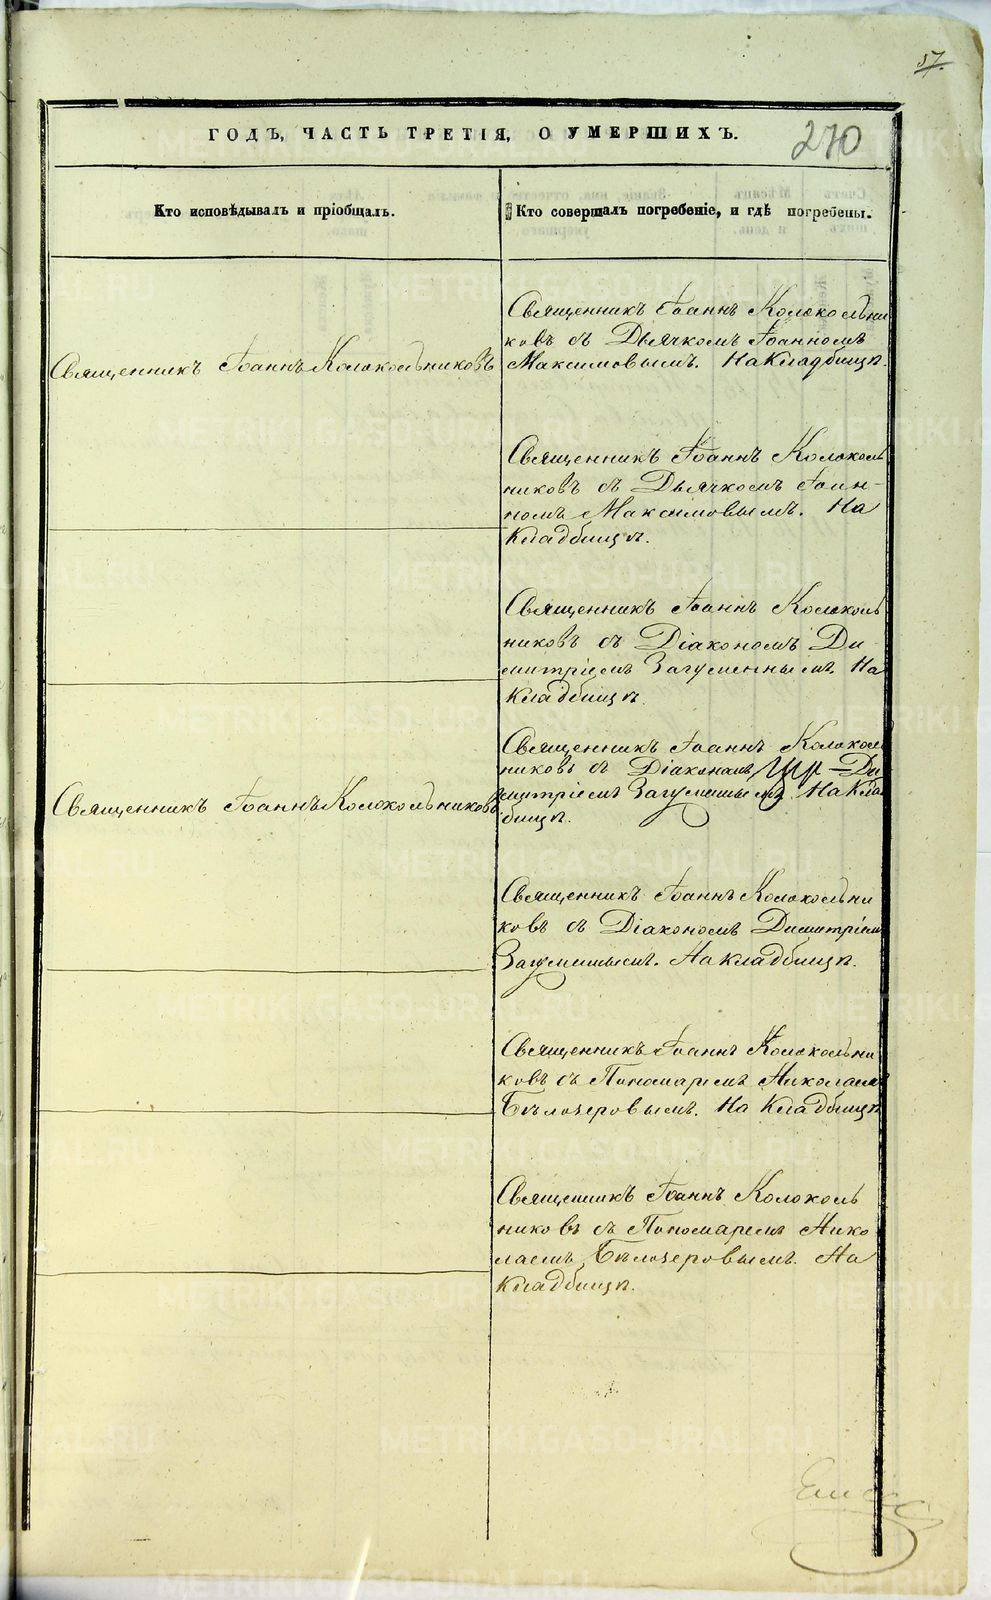 57.
ГОДЪ, ЧАСТЬ ТРЕТІЯ, О УМЕРШИХЪ.
270
Кто исповѣдывалъ и пріобщалъ.
Кто совершалъ погребеніе, и гдѣ погребены.
Священникъ Іоаннъ Колокольниковъ
Священникъ Іоаннъ Колокольни
ковъ съ Дьячкомъ Іоанномъ
Максимовымъ. На Кладбищѣ.
Священникъ Іоаннъ Коломоль
никовъ съ Дьячкомъ Іоан-
номъ Максимовымъ. На
Кладбищѣ.
Священникъ Іоаннъ Колоколь
никовъ съ Діакономъ Ди
митріемъ Загуменнымъ. На
Кладбищѣ.
Священникъ Іоаннъ Колокольниковъ
Священникъ Іоаннъ Колокол
никовъ съ Діакономъ Ди
митріемъ Загуменнымъ. На Клад
бищѣ.
Священникъ Іоаннъ Колокольни
ковъ съ Діакономъ Димитріем
Загуменнымъ. На кладбищѣ.
Священникъ Іоаннъ Колокольни
ковъ съ Пономаремъ Николаем
Бѣлозеровымъ. На Кладбищѣ
Священникъ Іоаннъ Колоколь
никовъ съ Пономаремъ Нико
лаемъ Бѣлозеровымъ. На
Кладбищѣ.
METRIKI.GASO-URAL.RU